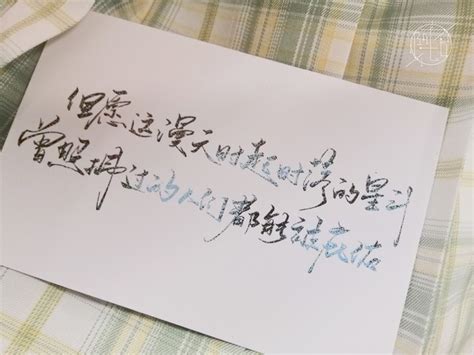 但愿这漫天时起时落的星斗
曾照拂过的人们都能被庇佑